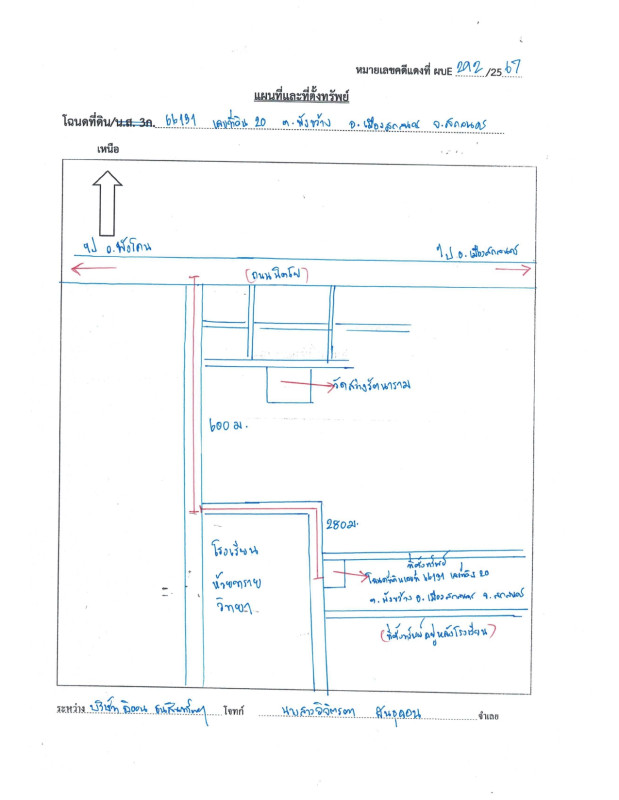 หมายเลขคดีแดงที่ ผบE 292 /25 67
แผนที่และที่ตั้งทรัพย์
โฉนดที่ดิน/น.ส. 3ก. 66191 เลขที่ดิน 20 ต.พังขว้าง อ.เมืองสกลนคร จ.สกลนคร
เหนือ
ไป อ.พังโคน
ไป อ.เมืองสกลนคร
(ถนนนิตโย)
วัดสว่างรัตนาราม
600 ม.
280 ม.
โรงเรียน
ห้วยทราย
วิทยา
ที่ตั้งทรัพย์
โฉนดที่ดินเลขที่ 66191 เลขที่ดิน 20
ต.พังขว้าง อ.เมืองสกลนคร จ.สกลนคร
(ที่ตั้งทรัพย์อยู่หลังโรงเรียน)
ระหว่าง บริษัท อิออน ธนสินทรัพย์ฯ โจทก์ นางสาววิจิตรตา จำเลย